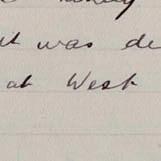 it was de
at West